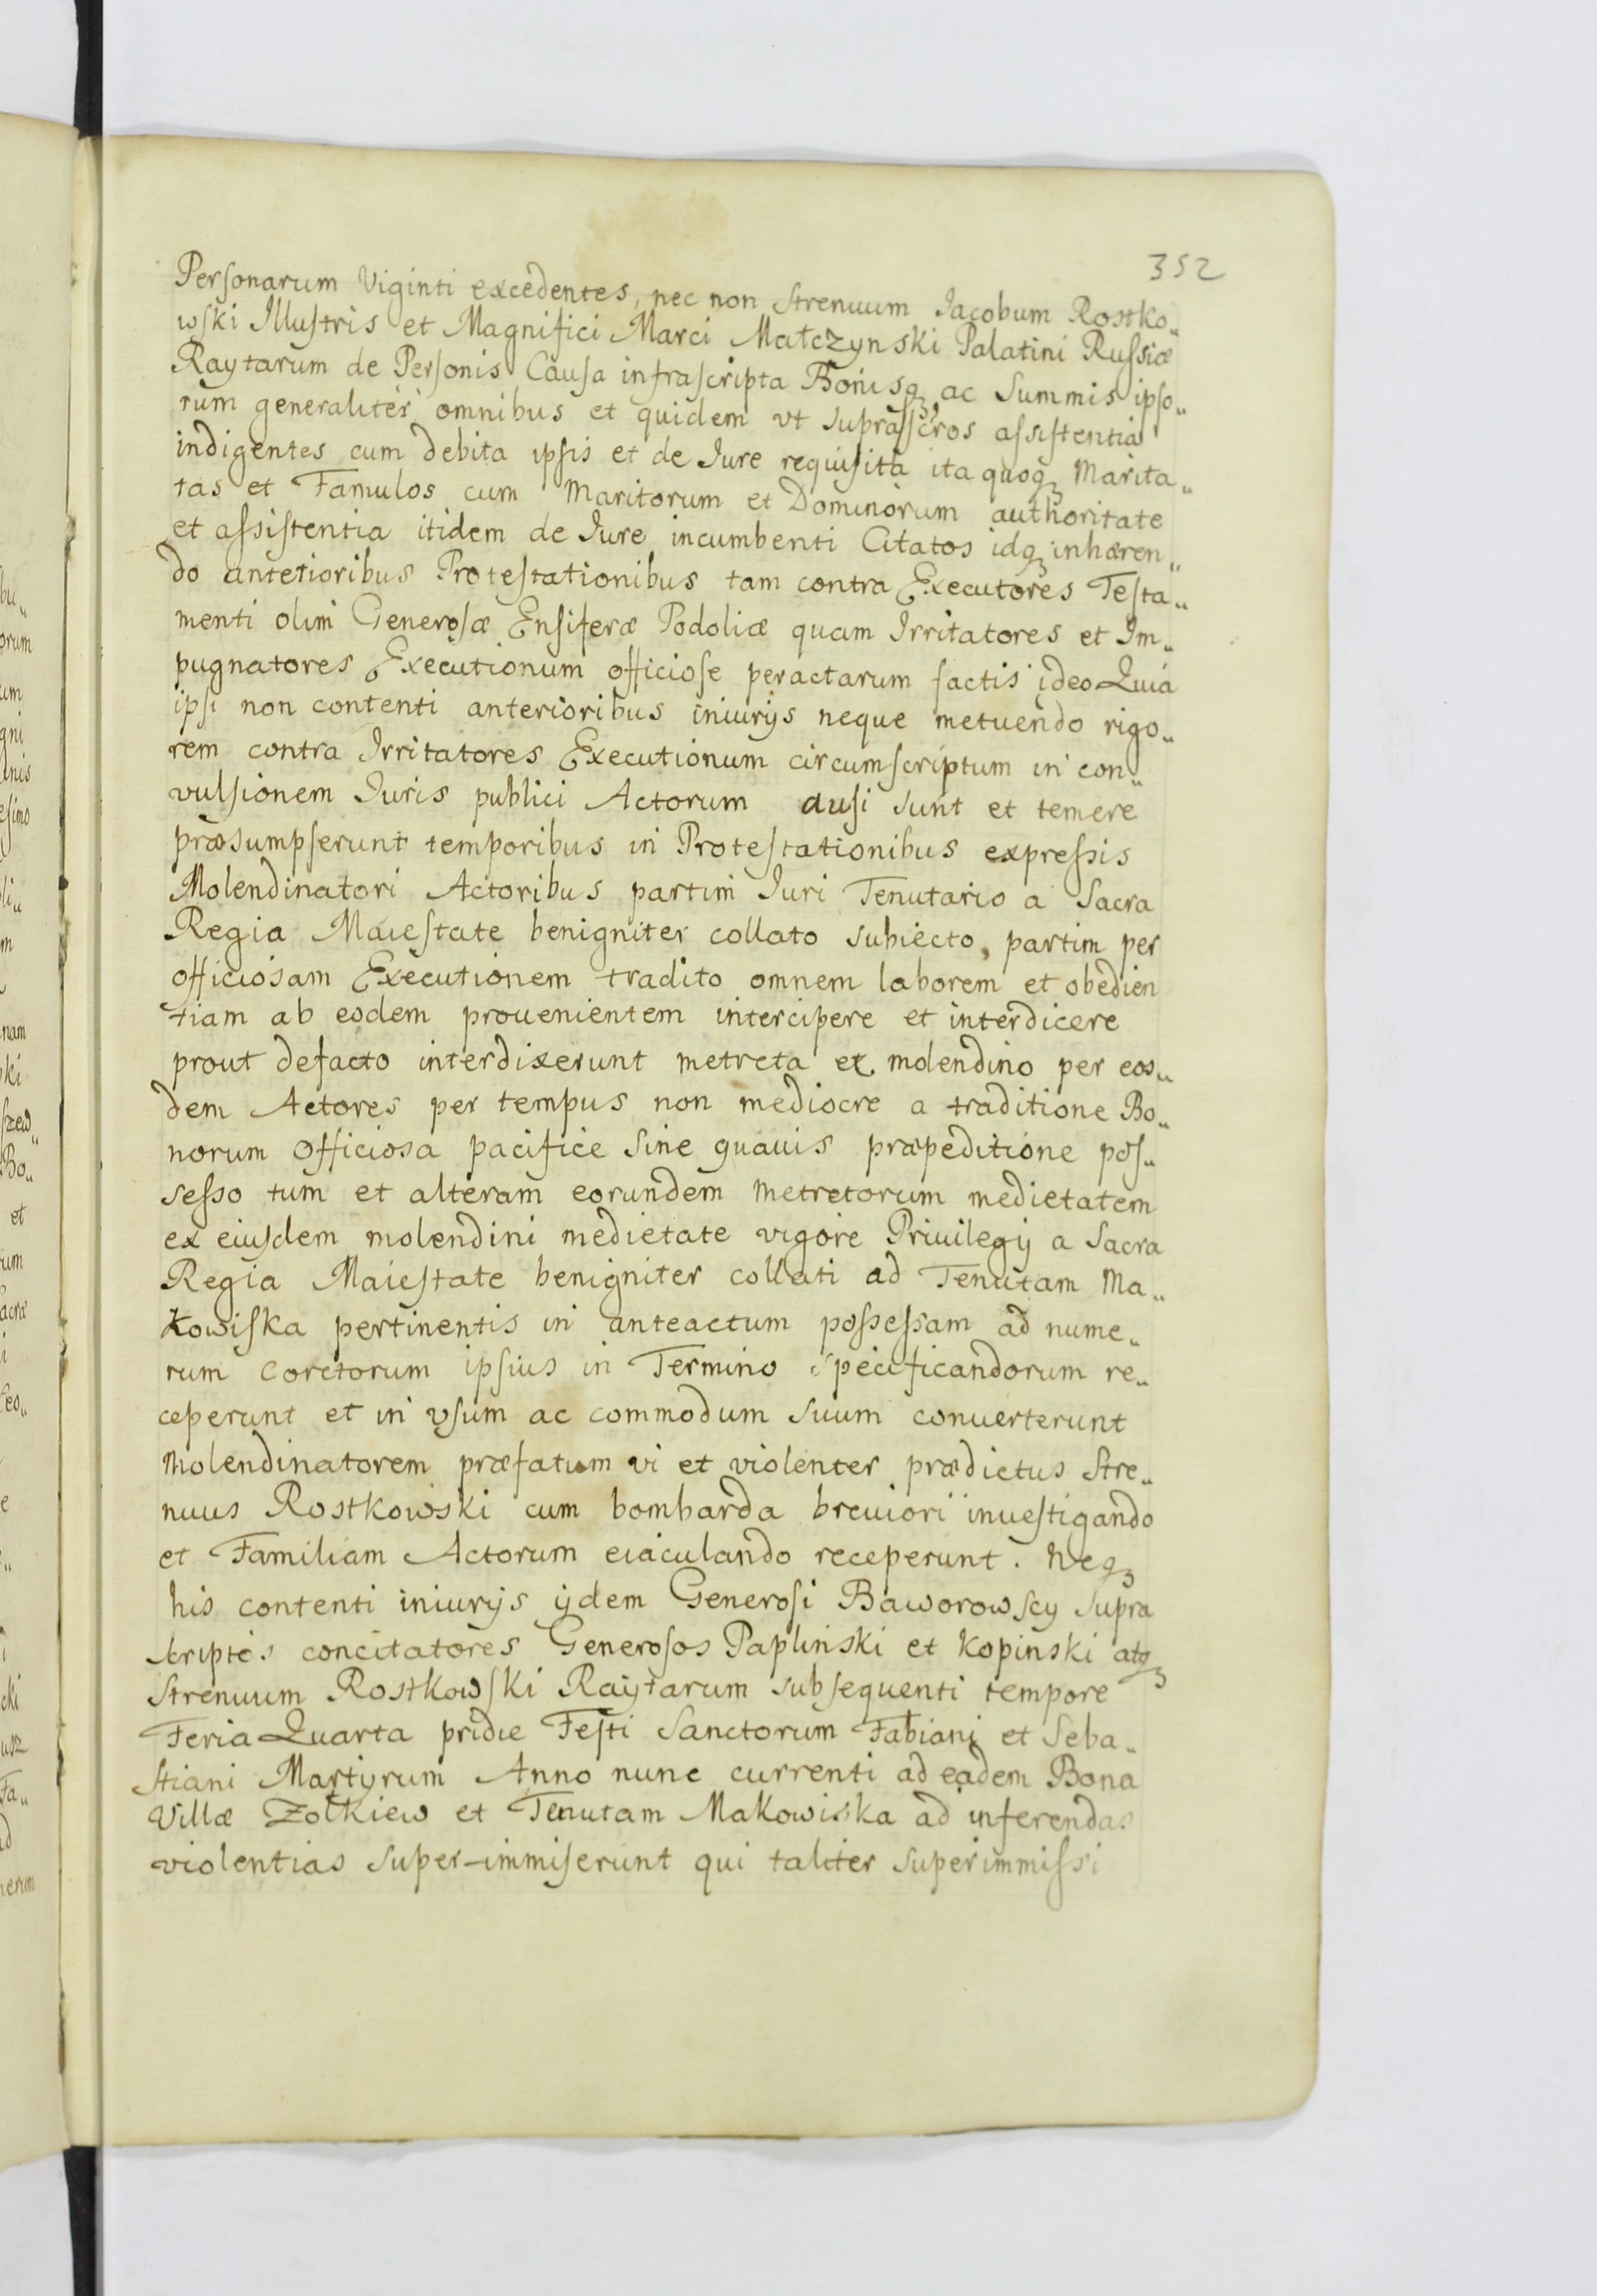 352
Personarum Viginti excedentes, nec non Strenuum Jacobum Rostko„
wski Illustris et Magnifici Marci Matczynski Palatini Russiæ
Raytarum de Personis Causa infrascripta Bonisq, ac Summis ipso„
rum generaliter omnibus et quidem vt suprasscros assistentia
indigentes cum debita ipsis et de Jure requisita ita quoq Marita„
tas et Famulos cum Maritorum et Dominorum authoritate
et assistentia itidem de Jure incumbenti Citatos idq inhæren„
do anterioribus Protestationibus tam contra Executores Testa„
menti olim Generosæ Ensiferæ Podoliæ quam Irritatores et Im„
pugnatores Executionum officiose peractarum factis ideo Quia
ipsi non contenti anterioribus iniurijs neque metuendo rigo„
rem contra Irritatores Executionum circumscriptum in con„
vulsionem Juris publici Actorum ausi sunt et temere
præsumpserunt temporibus in Protestationibus expressis
Molendinatori Actoribus partim Juri Tenutario a Sacra
Regia Maiestate benigniter collato subiecto, partim per
officiosam Executionem tradito omnem laborem et obedien
tiam ab eodem prouenientem intercipere et interdicere
prout defacto interdixerunt metreta ex molendino per eos„
dem Actores per tempus non mediocre a traditione Bo„
norum officiosa pacifice sine quauis præpeditione pos„
sesso tum et alteram eorundem metretorum medietatem
ex eiusdem molendini medietate vigore Priuilegij a Sacra
Regia Maiestate benigniter collati ad Tenutam Ma„
kowiska pertinentis in anteactum possessam ad nume„
rum coretorum ipsius in Termino specificandorum re„
ceperunt et in vsum ac commodum suum conuerterunt
Molendinatorem præfatum vi et violenter prædictus Stre„
nuus Rostkowski cum bombarda breuiori inuestigando
et Familiam Actorum eiaculando receperunt. Neq
his contenti iniurijs ijdem Generosi Baworowscy supra
scriptos concitatores Generosos Paplinski et Kopinski atq
Strenuum Rostkowski Raytarum subsequenti tempore
Feria Quarta pridie Festi Sanctorum Fabiani et Seba„
stiani Martyrum Anno nunc currenti ad eadem Bona
Villæ Zołkiew et Tenutam Makowiska ad inferendas
violentias super-immiserunt qui taliter superimmissi